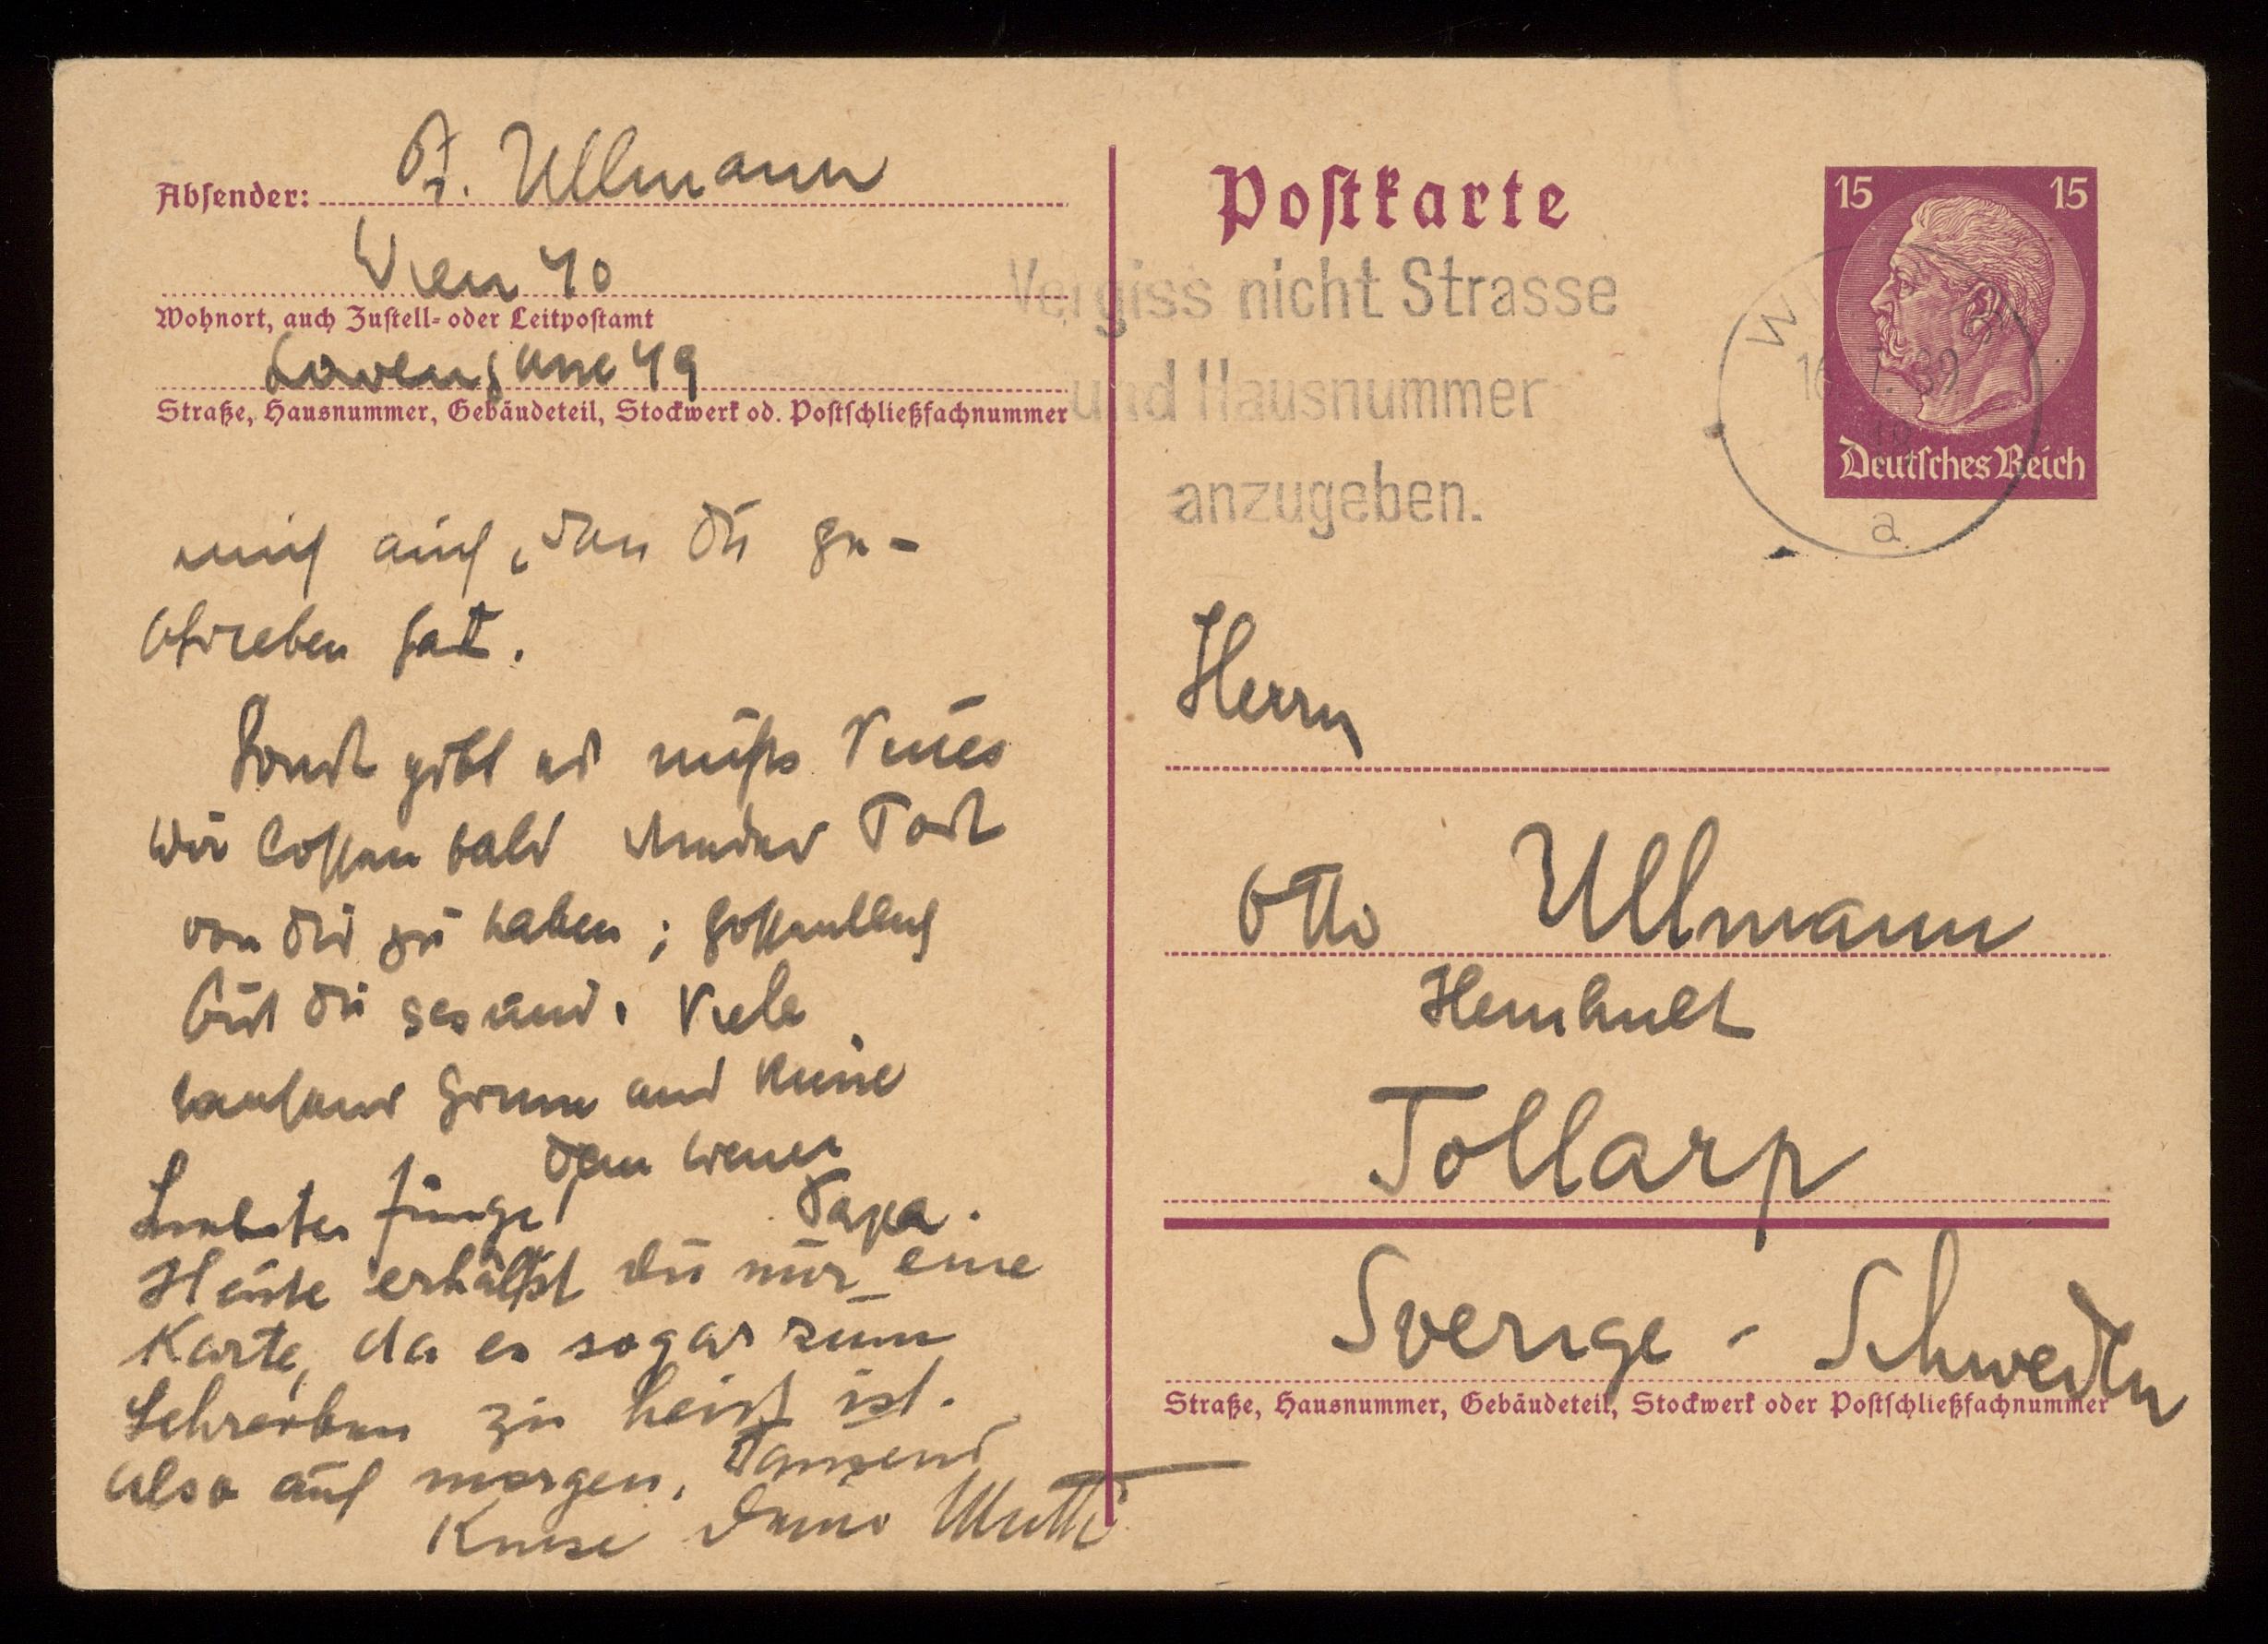 Absender: St. Ullmann
Wien 40
Wohnort, auch Zustell- oder Leitpostamt
49
Straße, Hausnummer, Gebäudeteil, Stockwerk od. Postschließfachnummer
mich auch, den du ge-
schrieben hat.
Sonst gibt es nichts Neues
Wir hoffen bald wieder Post
von dir zu haben; hoffentlich
bist du gesund. Viele
tausend Grüsse und Küsse
Dein treuer
Papa.
Liebster Junge!
Heute erhältst du nur eine
Karte, da es sogar zum
Schreiben zu heiß ist.
Also auf morgen. Tausend
Küsse Deine Mutti
Postkarte
Vergiss nicht Strasse
und Hausnummer
anzugeben.
15 15
Deutsches Reich
a
Herrn
Otto Ullmann
Hemhult
Tollarp
Sverige - Schweden
Straße, Hausnummer, Gebäudeteil, Stockwerk oder Postschließfachnummer